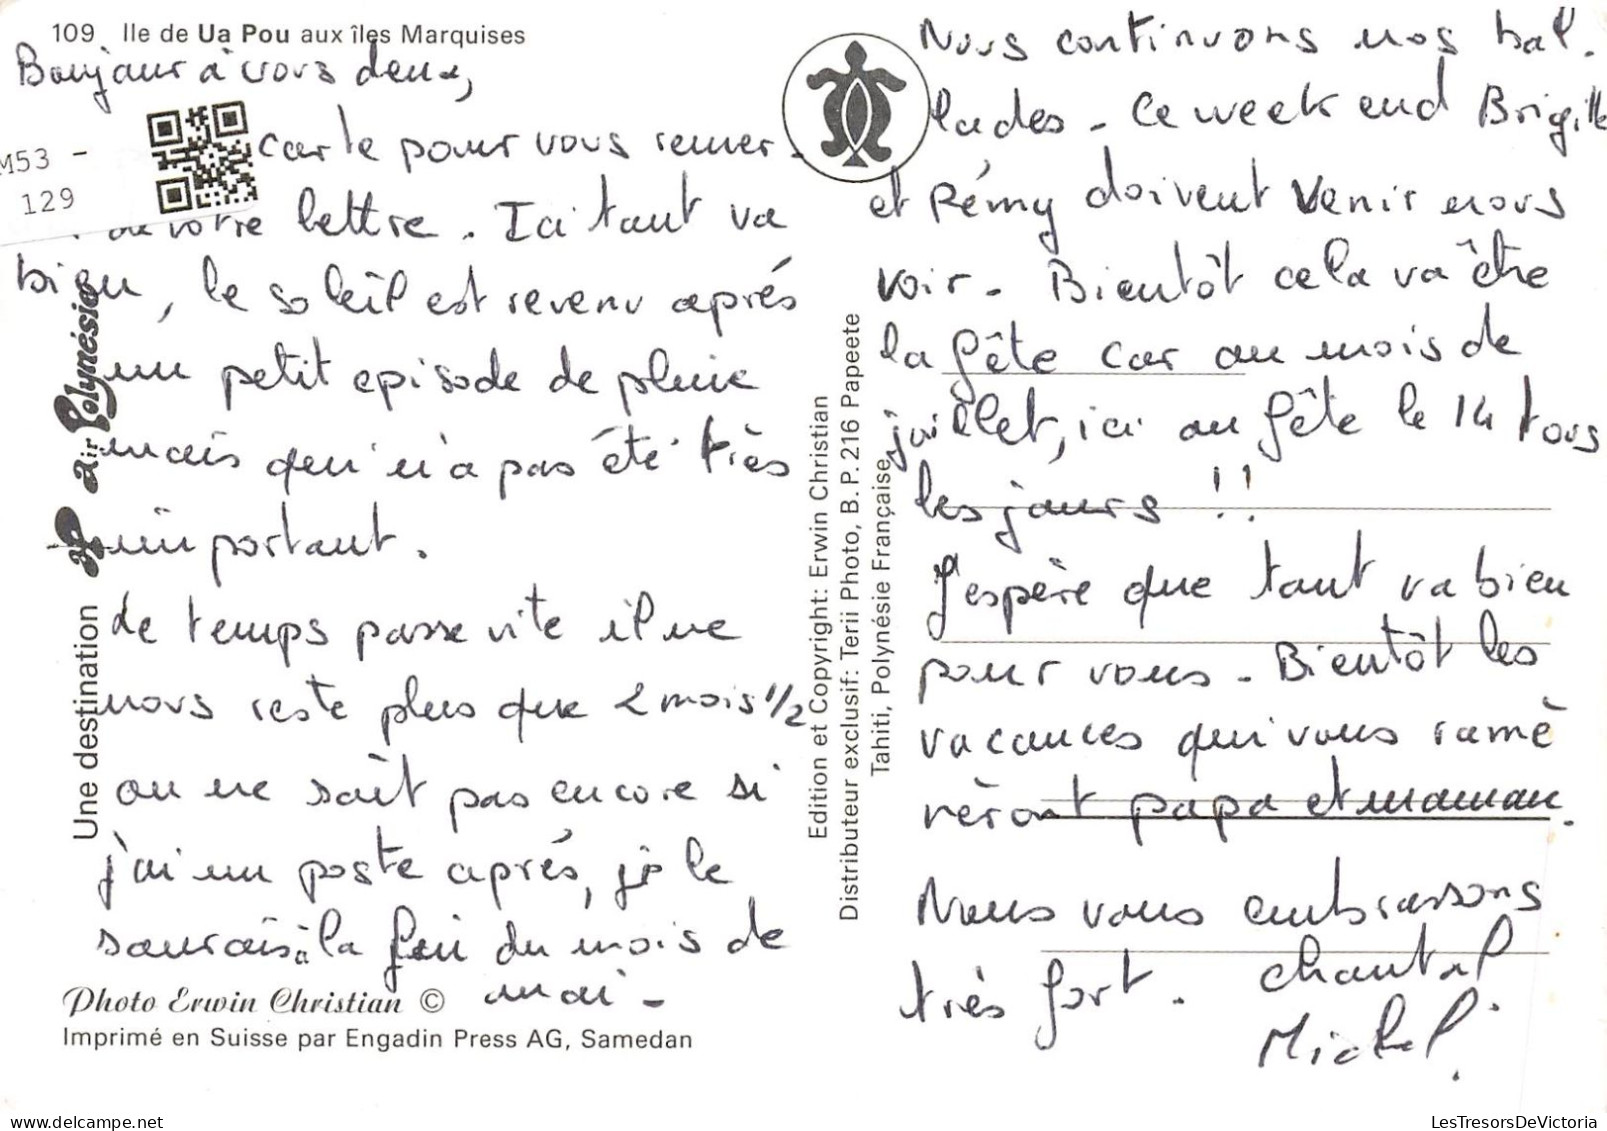 109 Ile de Ua Pou aux îles Marquises
Bonjour à vous deux,
carte pour vous remer-
M53 -
129
de votre lettre. Ici tout va
bien, le soleil est revenu après
un petit episode de pluie
mais qui n'a pas été très
important.
Le temps passe vite il ne
nous reste plus que 2 mois 1/2
on ne sait pas encore si
j'ai un poste après, je le
saurais à la fin du mois de
mai -
Photo Erwin Christian ©
Imprimé en Suisse par Engadin Press AG, Samedan
Une destination air Polynésie
Edition et Copyright: Erwin Christian
Distributeur exclusif: Terii Photo, B.P. 216 Papeete
Tahiti, Polynésie Française
Nous continuons nos bal-
lades - Ce week end Brigitte
et Rémy doivent venir nous
voir - Bientôt cela va être
la fête car au mois de
juillet, ici on fête le 14 tous
les jours !!
J'espère que tout va bien
pour vous - Bientôt les
vacances qui vous ramè
nèront papa et maman.
Nous vous embrassons
très fort. Chantal
Michel.
LesTresorsDeVictoria